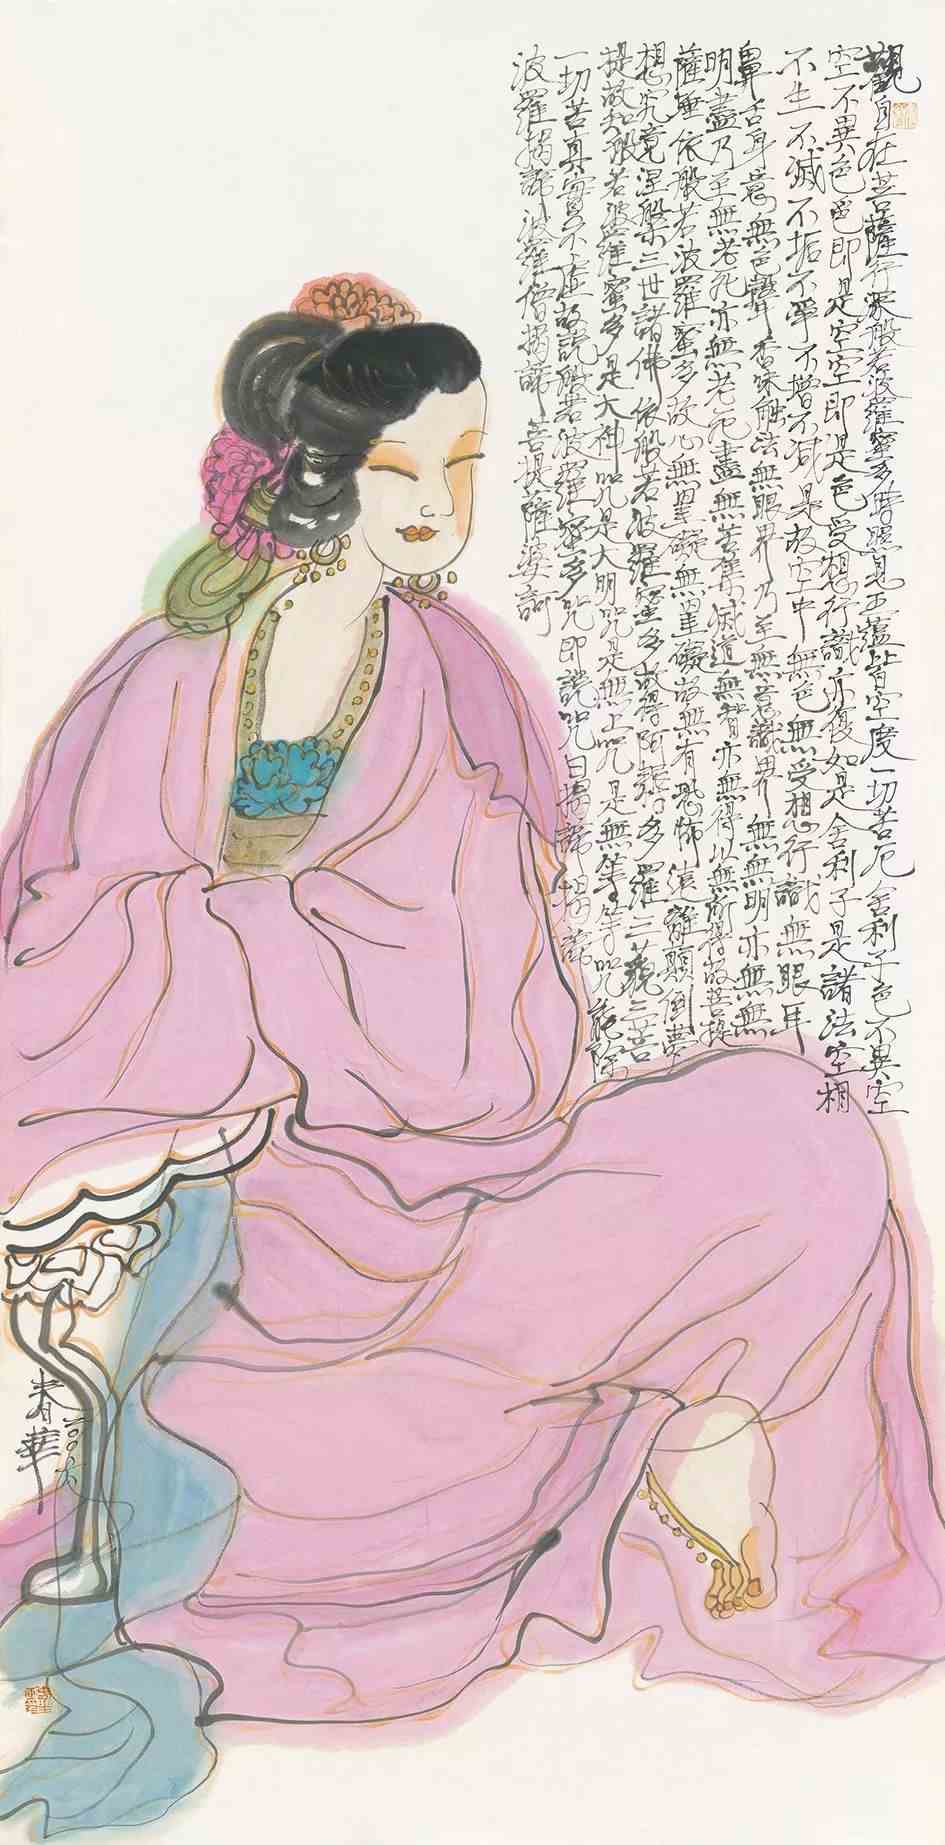 觀自在菩薩行深般若波羅蜜多時照見五蘊皆空度一切苦厄舍利子色不異空
空不異色色即是空空即是色受想行識亦復如是舍利子是諸法空相
不生不滅不垢不淨不增不減是故空中無色無受想行識無眼耳
鼻舌身意無色聲香味觸法無眼界乃至無意識界無無明亦無無
明盡乃至無老死亦無老死盡無苦集滅道無智亦無得以無所得故菩提
薩埵依般若波羅蜜多故心無罣礙無罣礙故無有恐怖遠離顛倒夢
想究竟涅槃三世諸佛依般若波羅蜜多故得阿耨多羅三藐三菩
提故知般若波羅蜜多是大神咒是大明咒是無上咒是無等等咒能除
一切苦真實不虛故說般若波羅蜜多咒即說咒曰揭諦揭諦
波羅揭諦波羅僧揭諦菩提薩婆訶
春華
二〇〇六